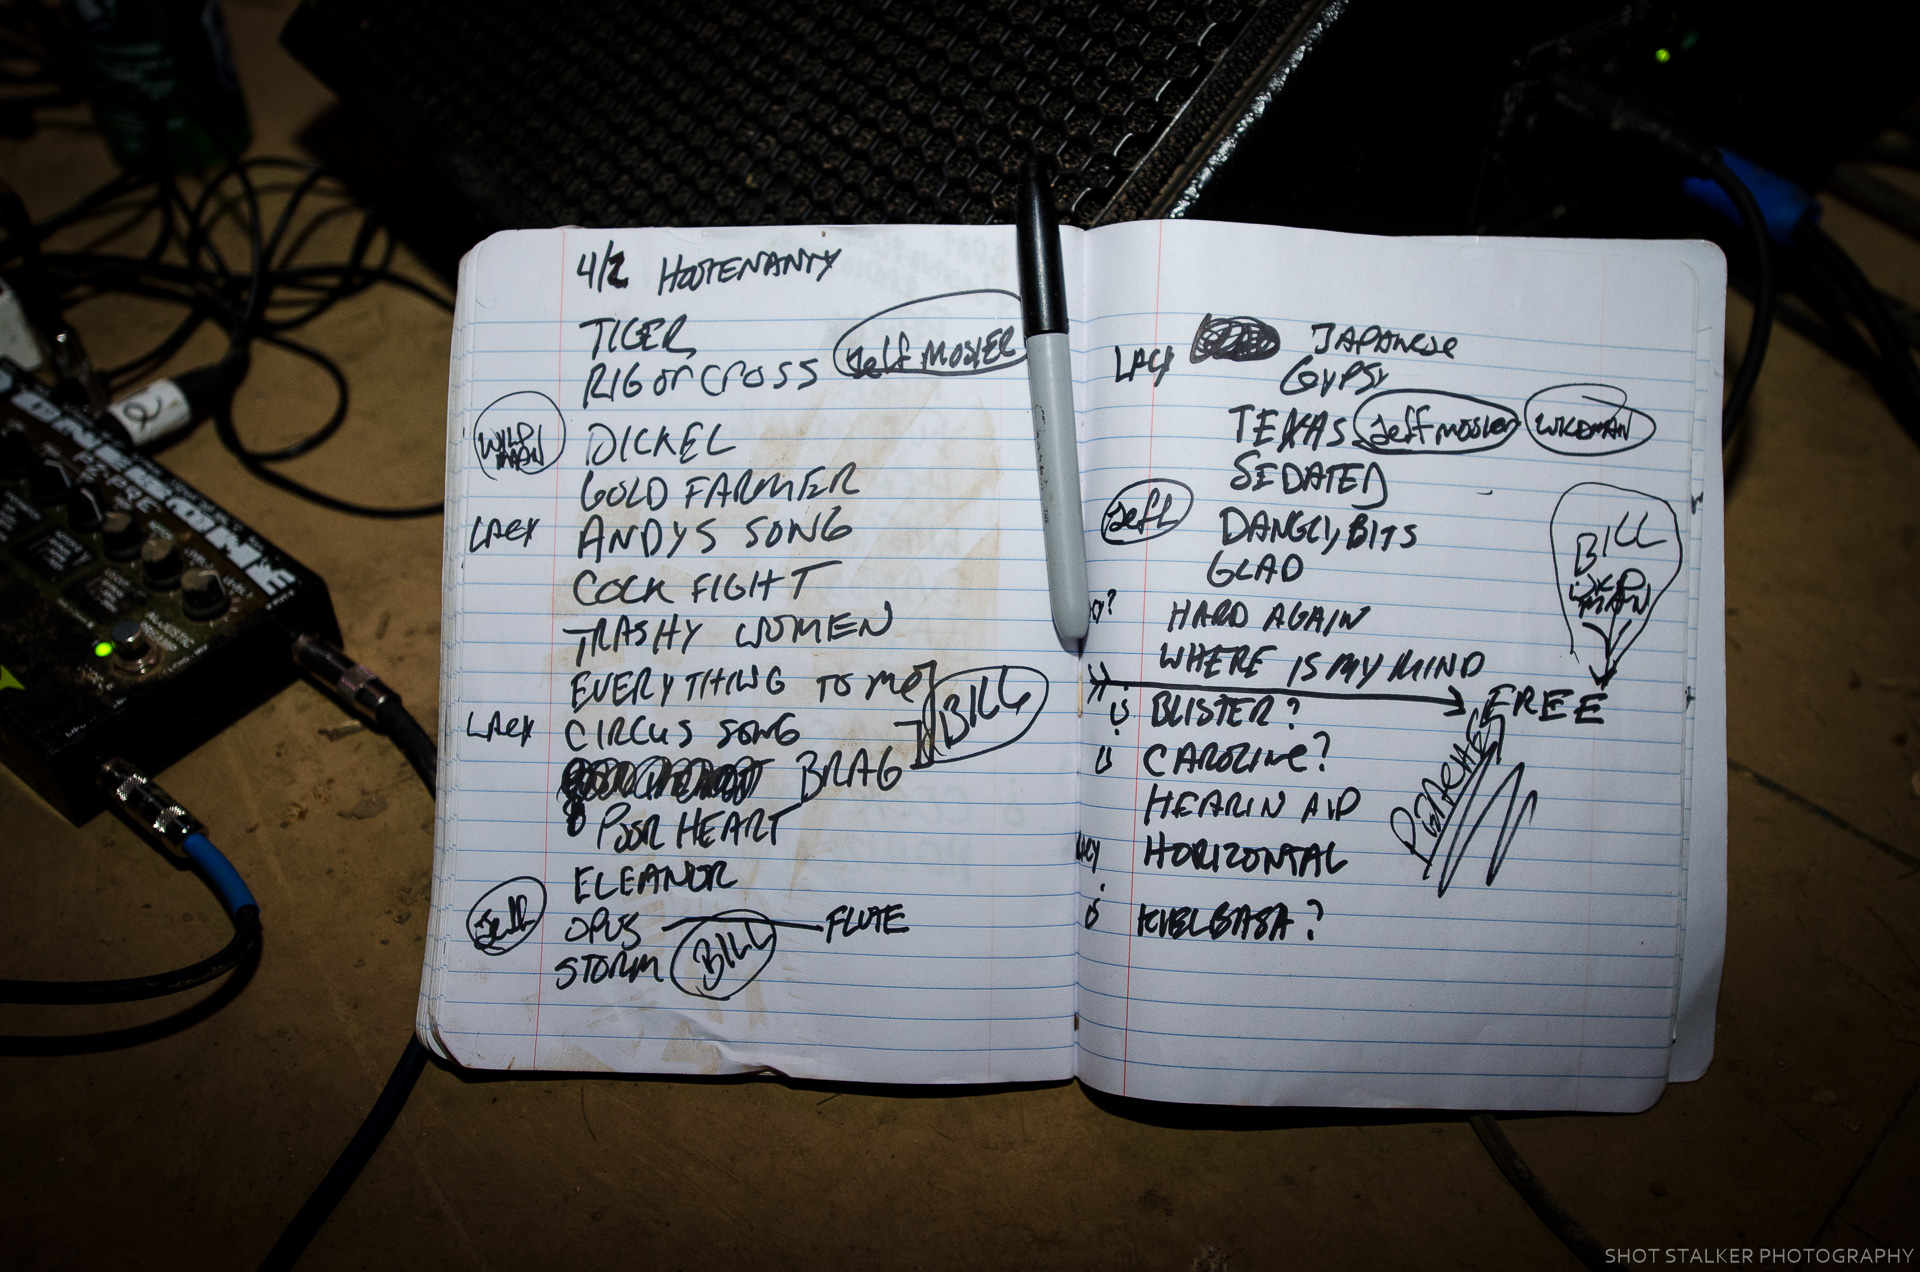 4/2 HOOTENANTY
TIGER
RIG OR CROSS Jeff MOSIER
WILD MAN DICKEL
GOLD FARMER
LACY ANDYS SONG
COCK FIGHT
TRASHY WOMEN
EVERYTHING TO ME
LACY CIRCUS SONG BILL
BRAG
POOR HEART
ELEANOR
Jeff OPUS FLUTE
STORM BILL
LACY JAPANESE
GYPSY
TEXAS Jeff MOSIER WILDMAN
SEDATED
Jeff DANGLY BITS
GLAD
HARD AGAIN
WHERE IS MY MIND
BILL
WILD MAN
FREE
BLISTER?
CAROLINE?
HEARIN AID
LACY HORIZONTAL
KIELBASA?
2
SHOT STALKER PHOTOGRAPHY